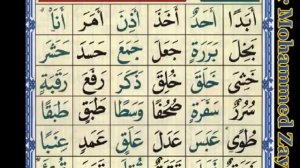 أَبَدًا أَحَدٌ أَخَذَ أَذِنَ أَمَرَ أَنَا
بَخِلَ بَرَرَةٍ جَعَلَ جَمَعَ حَسَدَ حَشَرَ
خَشِيَ خَلَقَ خُلِقَ ذَكَرَ رَفَعَ رَقَبَةٍ
سُرُرٌ سَفَرَةٍ صُحُفًا وَسَطًا طَبَقٍ طَبَقًا
طُوًى عَبَسَ عَدَلَ عَلَقٍ عَمَدٍ عِنَبًا
: Mohammed Zay